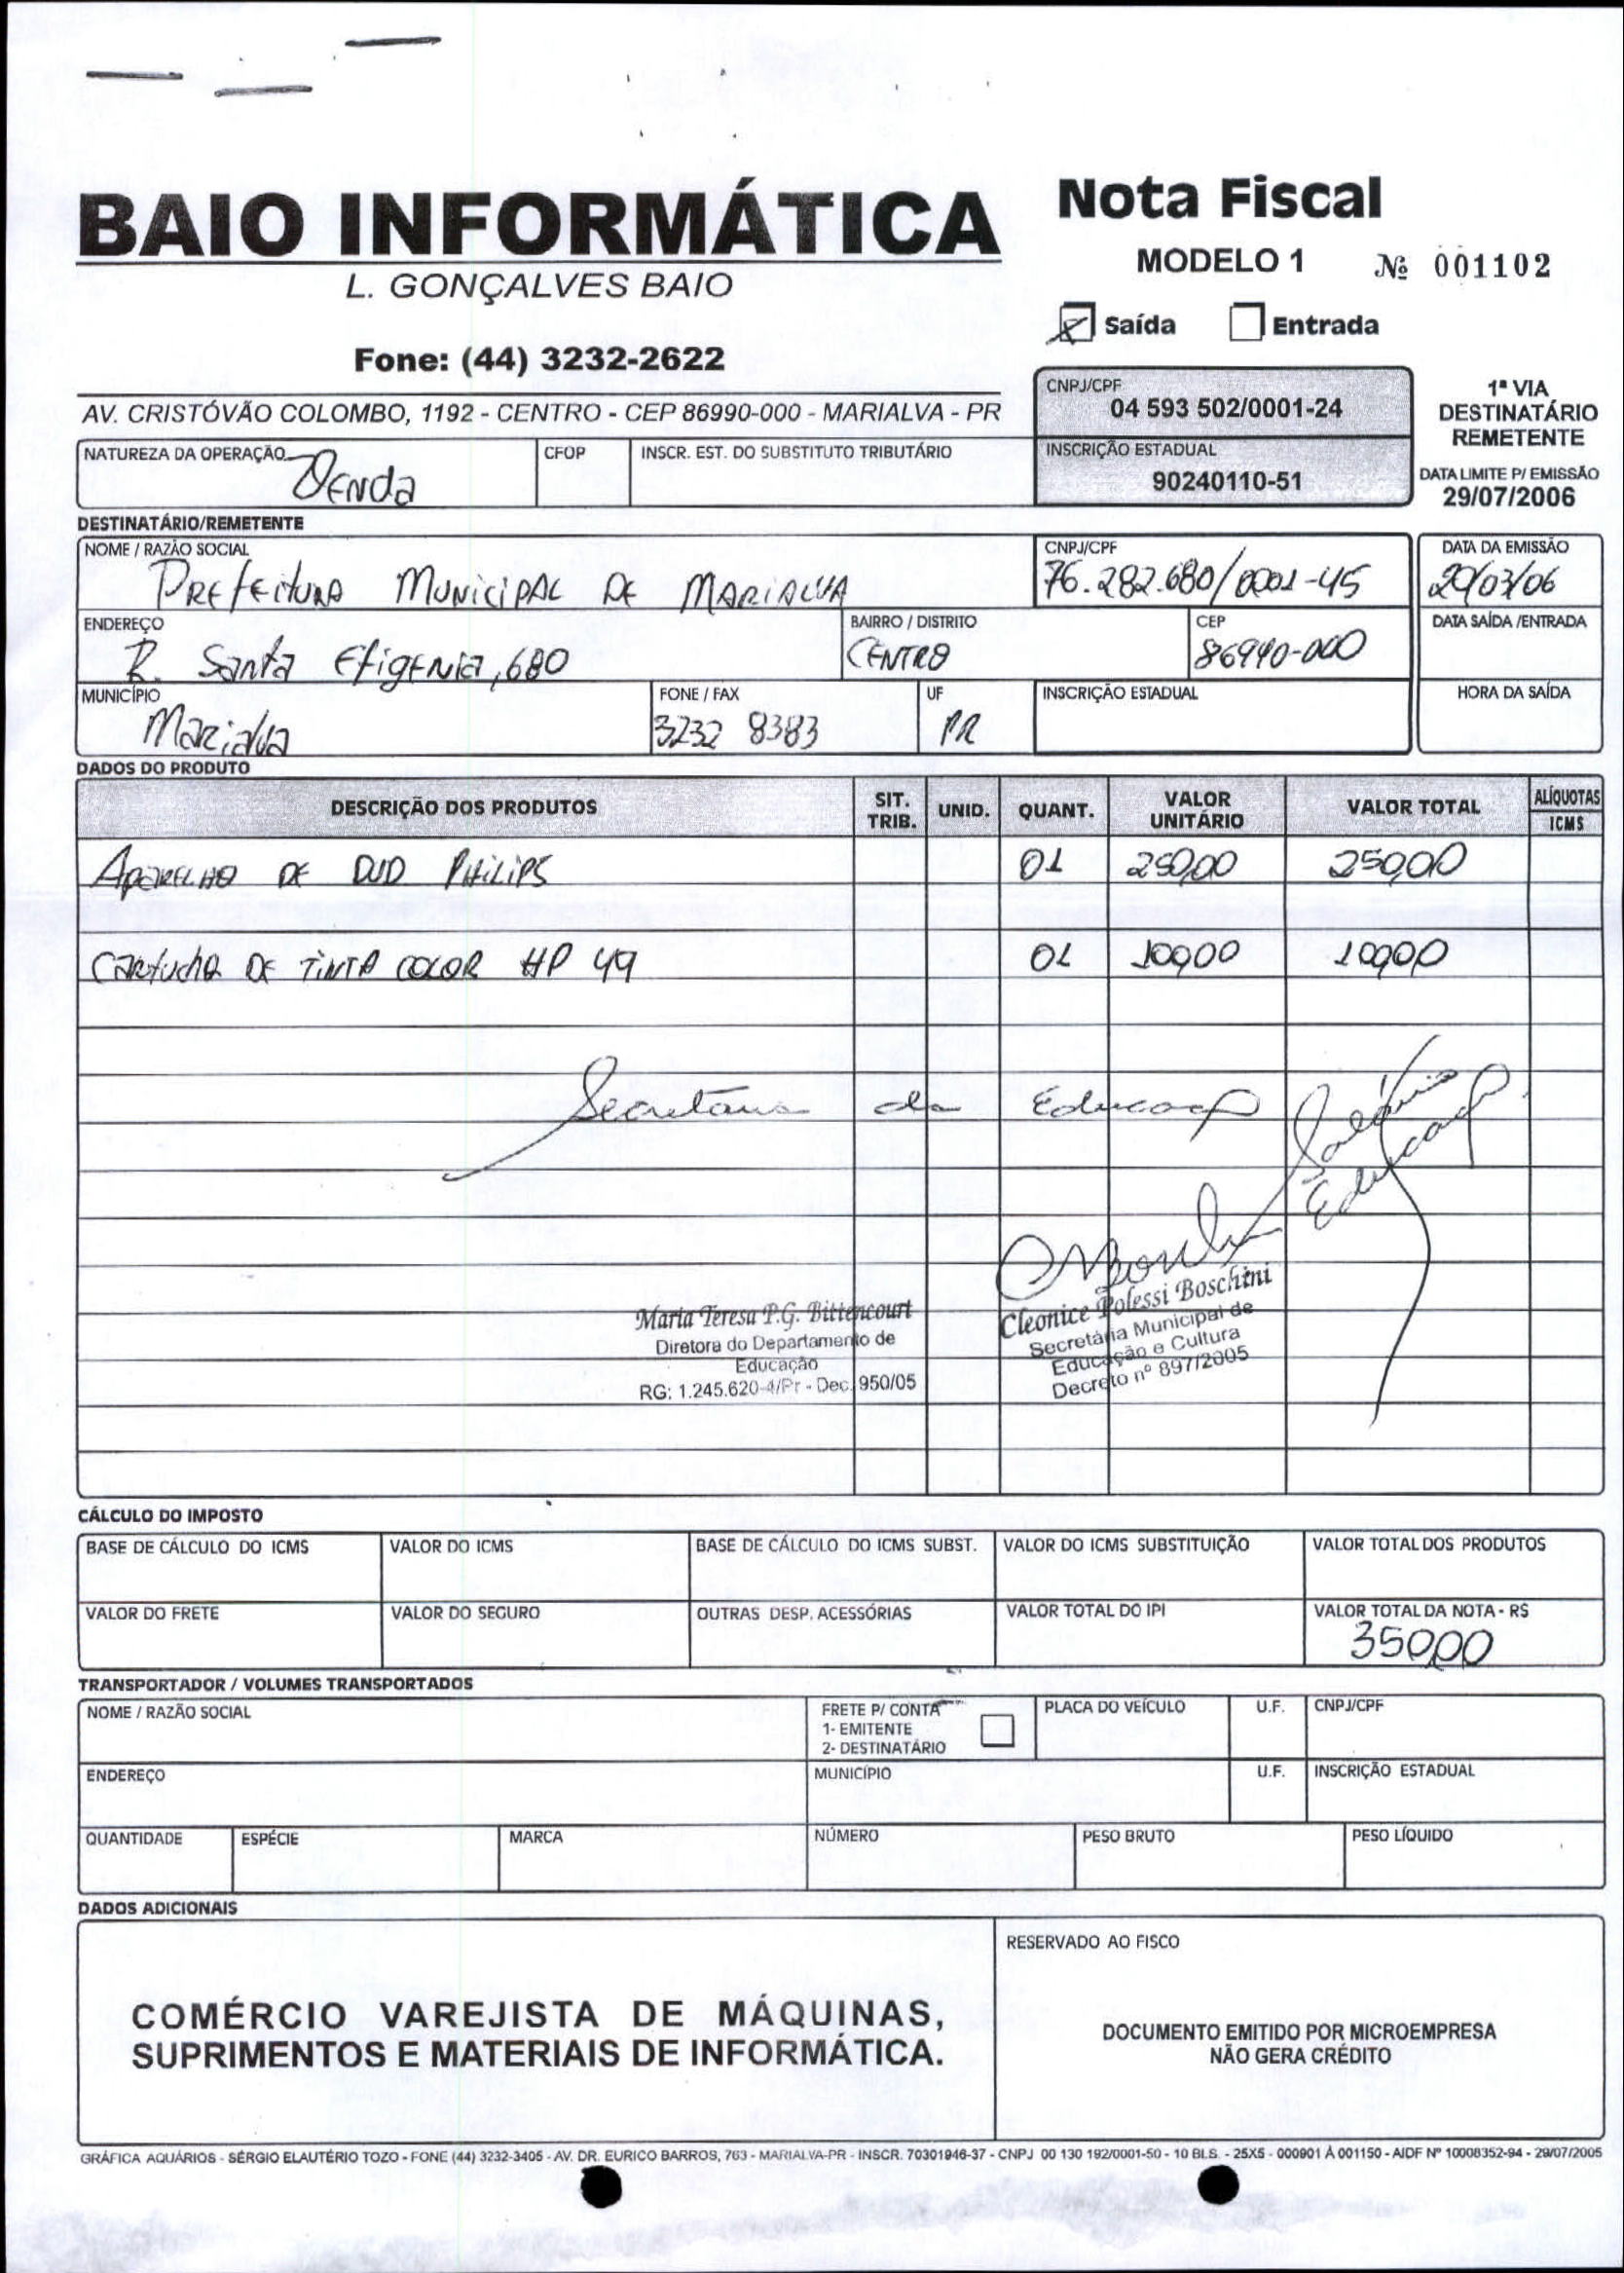 BAIO INFORMÁTICA
L. GONÇALVES BAIO
Fone: (44) 3232-2622
AV. CRISTÓVÃO COLOMBO, 1192 - CENTRO - CEP 86990-000 - MARIALVA - PR
Nota Fiscal
MODELO 1 Nº 001102
Saída Entrada
CNPJ/CPF
04 593 502/0001-24
INSCRIÇÃO ESTADUAL
90240110-51
1ª VIA
DESTINATÁRIO
REMETENTE
DATA LIMITE P/ EMISSÃO
29/07/2006
NATUREZA DA OPERAÇÃO CFOP INSCR. EST. DO SUBSTITUTO TRIBUTÁRIO
Venda
DESTINATÁRIO/REMETENTE
NOME / RAZÃO SOCIAL CNPJ/CPF DATA DA EMISSÃO
PREFEITURA MUNICIPAL DE MARIALVA 76.282.680/0001-45 /03/06
ENDEREÇO BAIRRO / DISTRITO CEP DATA SAÍDA /ENTRADA
R. Santa Efigenia, 680 CENTRO 86990-000
MUNICÍPIO FONE / FAX UF INSCRIÇÃO ESTADUAL HORA DA SAÍDA
Marialva 3232 8383 PR
DADOS DO PRODUTO
DESCRIÇÃO DOS PRODUTOS SIT. TRIB. UNID. QUANT. VALOR UNITÁRIO VALOR TOTAL ALÍQUOTAS ICMS
APARELHO DE DVD PHILIPS 01 250,00 250,00
CARTUCHO DE TINTA COLOR HP 49 01 100,00 100,00
Secretaria da Educação
Educação
Maria Teresa P.G. Bittencourt
Diretora do Departamento de
Educação
RG: 1.245.620-4/Pr - Dec. 950/05
Cleonice Polessi Boschini
Secretária Municipal de
Educação e Cultura
Decreto nº 897/2005
CÁLCULO DO IMPOSTO
BASE DE CÁLCULO DO ICMS VALOR DO ICMS BASE DE CÁLCULO DO ICMS SUBST. VALOR DO ICMS SUBSTITUIÇÃO VALOR TOTAL DOS PRODUTOS
VALOR DO FRETE VALOR DO SEGURO OUTRAS DESP. ACESSÓRIAS VALOR TOTAL DO IPI VALOR TOTAL DA NOTA - R$
350,00
TRANSPORTADOR / VOLUMES TRANSPORTADOS
NOME / RAZÃO SOCIAL FRETE P/ CONTA PLACA DO VEÍCULO U.F. CNPJ/CPF
1- EMITENTE
2- DESTINATÁRIO
ENDEREÇO MUNICÍPIO U.F. INSCRIÇÃO ESTADUAL
QUANTIDADE ESPÉCIE MARCA NÚMERO PESO BRUTO PESO LÍQUIDO
DADOS ADICIONAIS
COMÉRCIO VAREJISTA DE MÁQUINAS,
SUPRIMENTOS E MATERIAIS DE INFORMÁTICA.
RESERVADO AO FISCO
DOCUMENTO EMITIDO POR MICROEMPRESA
NÃO GERA CRÉDITO
GRÁFICA AQUÁRIOS - SÉRGIO ELAUTÉRIO TOZO - FONE (44) 3232-3405 - AV. DR. EURICO BARROS, 763 - MARIALVA-PR - INSCR. 70301946-37 - CNPJ 00 130 192/0001-50 - 10 BLS. - 25X5 - 000901 À 001150 - AIDF Nº 10008352-94 - 29/07/2005